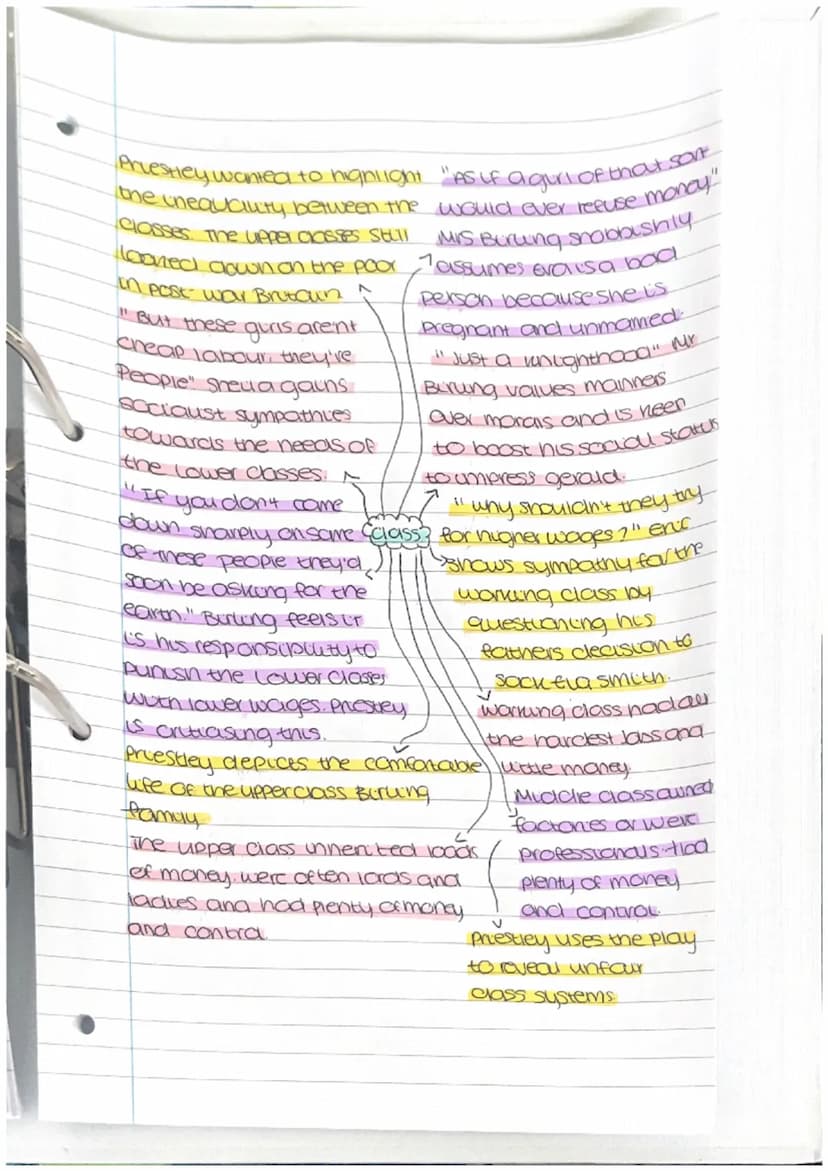 Priestley wanted to highlight
the inequality between the
classes. The upper classes still
looked down on the poor
in post-war Britain
"But these girls arent
cheap labour, they're
People" Sheila gains
socialist sympathies
towards the needs of
the lower classes.
"If you don't come
down sharply on some
of these people they'd
soon be asking for the
earth." Birling feels it
is his responsibility to
punish the lower classes
with lower wages. Priestley
is criticising this.
Priestley depicts the comfortable
life of the upperclass Birling
family
The upper class inherited loads
of money. were often lords and
ladies and had plenty of money
and control.
class
"As if a girl of that sort
would ever refuse money"
Mrs Birling snobbishly
assumes Eva is a bad
person because she is
pregnant and unmarried.
"Just a knighthood" Mr
Birling values manners
over morals and is keen
to boost his social status
to impress gerald.
"Why shouldn't they try
for higher wages?" Eric
shows sympathy for the
working class by
questioning his
fathers decision to
sack Eva Smith.
Working class had all
the hardest jobs and
little money
Middle class owned
factories or were
professionals. Had
plenty of money
and control.
Priestley uses the play
to reveal unfair
class systems